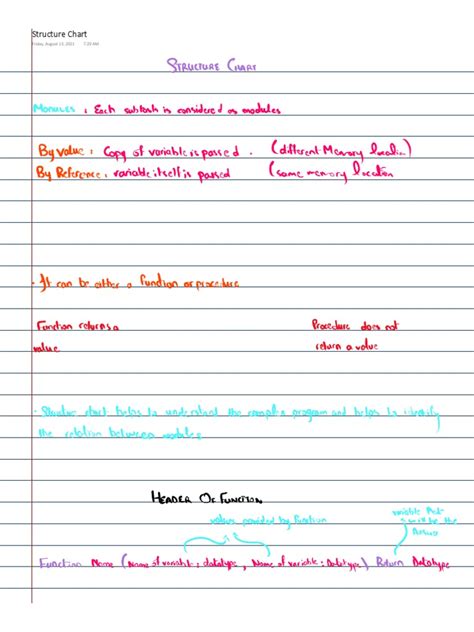 Structure Chart
Friday, August 13, 2021 7:29 AM
STRUCTURE CHART
Modules : Each subtask is considered as modules
By value : Copy of variable is passed . (different Memory location)
By Reference : variable itself is passed (same memory location
· It can be either a function or procedure
Function returns a Procedure does not
value return a value
· Structure chart helps to understand the complex program and helps to identify
the relation between modules
HEADER OF FUNCTION
values provided by function variable that
will be the
Function Name (Name of variable : datatype , Name of variable : Datatype) Return Datatype